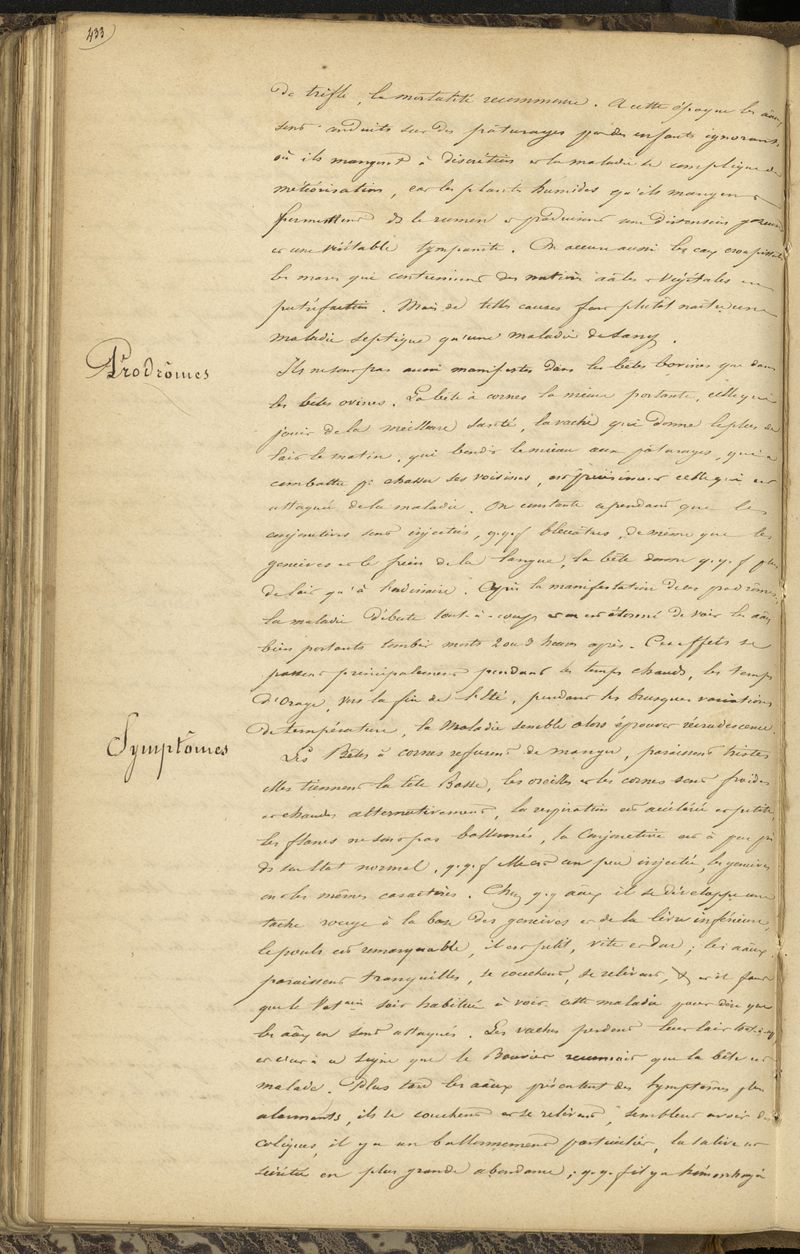 433
De trifle, la mortalité recommence. A cette époque les aāux
sont conduits sur des pâturages par des enfants ignorants,
où ils mangent à discrétion et la maladie se complique de
météorisation, car les plantes humides qu'ils mangent
fermentent ds le rumen et produisent une distension gazeuse
et une véritable tympanite. On accuse aussi les eaux croupissantes
les mares qui contiennent des matières aāles et végétales en
putréfaction. Mais de telles causes font plutôt naître une
maladie septique qu'une maladie de sang.
Prodrômes
Ils ne sont pas aussi manifestes dans les bêtes bovines que dans
les bêtes ovines. La bête à cornes la mieux portante, celle qui
jouit de la meilleure santé, la vache qui donne le plus de
lait le matin, qui bondit le mieux aux pâturages, qui a
combattu pr chasser ses voisines, est précisément celle qui est
attaquée de la maladie. On constate cependant que les
conjonctives sont injectées, q.q.f bleuâtres, de même que les
gencives et le frein de la langue, la bête donne q.q.f plus
de lait qu'à l'ordinaire. Après la manifestation de ces prodrômes,
la maladie débute tout-à-coup et on est étonné de voir les aāux
bien portants tomber morts 2 ou 3 heures après. Ces effets se
passent principalement pendant les temps chauds, les temps
d'orage, vers la fin de l'été, pendant les brusques variations
de température, la maladie semble alors éprouver recrudescence.
Symptômes
Les Bêtes à cornes refusent de manger, paraissent tristes
elles tiennent la tête Basse, les oreilles et les cornes sont froides
et chaudes alternativement, la respiration est accélérée et petite,
les flancs ne sont pas ballonnés, la Conjonctive est à peu près
ds son état normal, q.q.f elle est un peu injectée, les gencives
ont les mêmes caractères. Chez q.q aāux il se développe une
tache rouge à la base des gencives et de la lèvre inférieure,
le pouls est remarquable, il est petit, vite et dur; les aāux
paraissent tranquilles, se couchent, se relèvent, & et il faut
que le Vétaire soit habitué à voir cette maladie pour dire que
les aāux en sont attaqués. Les vaches perdent leur lait
et c'est à ce signe que le Bouvier reconnait que la bête est
malade. Plus tard les aāux présentent des symptômes plus
alarmants, ils se couchent et se relèvent, semblent avoir des
coliques, il y a un ballonnement particulier, la salive est
sécrétée en plus grande abondance, q.q.f il y a hémorrhagie